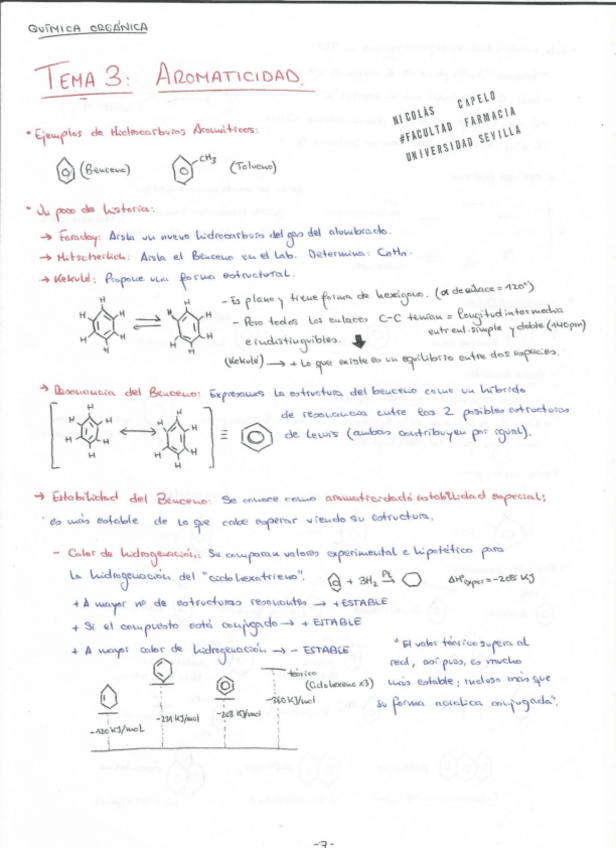 QUÍMICA ORGÁNICA
TEMA 3: AROMATICIDAD.
NICOLÁS CAPELO
#FACULTAD FARMACIA
UNIVERSIDAD SEVILLA
* Ejemplos de Hidrocarburos Aromáticos:
(Benceno)
CH3
(Tolueno)
* Un poco de historia:
→ Faraday: Aisla un nuevo hidrocarburo del gas del alumbrado.
→ Mitscherlich: Aisla el Benceno en el Lab. Determina: CnHn.
→ Kekulé: Propone una forma estructural.
- Es plano y tiene forma de hexágono. (α de enlace = 120º)
- Pero todos los enlaces C-C tenían = longitud intermedia
entre el simple y doble (140pm)
e indistinguibles.
(Kekulé) → + Lo que existe es un equilibrio entre dos especies.
H H H H H H H H H H H H
→ Resonancia del Benceno: Expresamos la estructura del benceno como un híbrido
de resonancia entre las 2 posibles estructuras
de Lewis (ambas contribuyen por igual).
H H H H H H H H H H H H
→ Estabilidad del Benceno: Se conoce como aromaticidad ó estabilidad especial;
es más estable de lo que cabe esperar viendo su estructura.
- Calor de hidrogenación: Se comparan valores experimental e hipotético para
la hidrogenación del "ciclohexatrieno".
+ 3H2 Pt → ΔHºexper = -208 KJ
+ A mayor nº de estructuras resonantes → + ESTABLE
+ Si el compuesto está conjugado → + ESTABLE
+ A mayor calor de hidrogenación → - ESTABLE
"El valor teórico supera al
real, así pues, es mucho
más estable; incluso más que
su forma acíclica conjugada".
teórico
(Ciclohexeno x3)
-120 KJ/mol
-231 KJ/mol
-208 KJ/mol
-360 KJ/mol
-7-